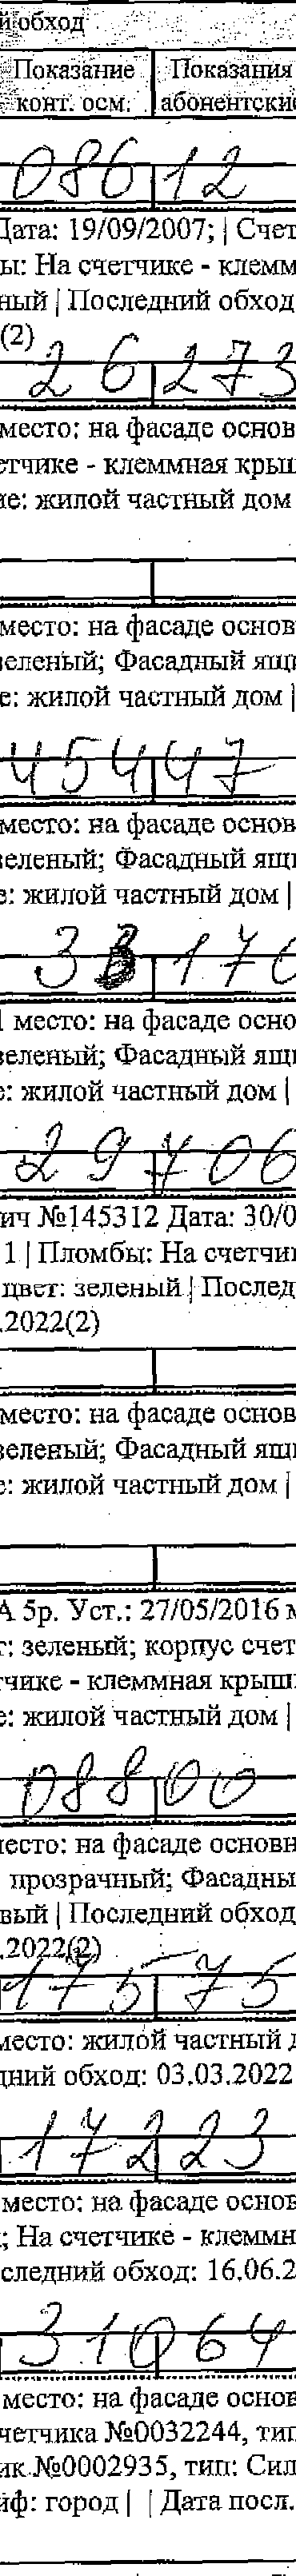 й обход
Показание Показания
конт. осм. абонентские
08612
Дата: 19/09/2007; | Счет
ы: На счетчике - клемм
ный | Последний обход
(2)
26273
место: на фасаде основ
етчике - клеммная крыш
ие: жилой частный дом
место: на фасаде основ
зеленый; Фасадный ящи
е: жилой частный дом |
45447
место: на фасаде основ
зеленый; Фасадный ящи
е: жилой частный дом |
33170
место: на фасаде осно
зеленый; Фасадный ящи
е: жилой частный дом |
29706
ич №145312 Дата: 30/0
1 | Пломбы: На счетчи
цвет: зеленый | Послед
.2022(2)
место: на фасаде основ
зеленый; Фасадный ящи
е: жилой частный дом |
А 5р. Уст.: 27/05/2016 м
т: зеленый; корпус счет
тчике - клеммная крыш
е: жилой частный дом |
08800
место: на фасаде основн
прозрачный; Фасадны
вый | Последний обход
.2022(2)
17575
место: жилой частный д
дний обход: 03.03.2022
17223
место: на фасаде основ
; На счетчике - клеммн
следний обход: 16.06.2
31064
место: на фасаде основ
счетчика №0032244, тип
ик №0002935, тип: Сил
иф: город | | Дата посл.